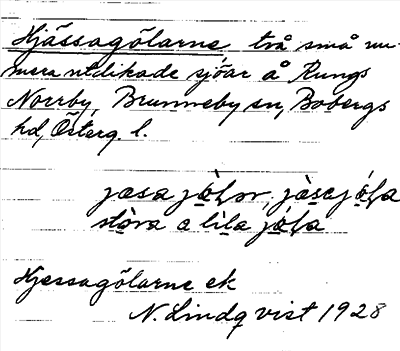 Hjässagölarne två små nu-
mera utdikade sjöar å Kungs
Norrby, Brunneby sn, Bobergs
hd, Österg. l.
jæsa jö̀ḷɑr, jæ̀sa jö́ḷa
stò̱ra a lila jö́ḷa
Hjessagölarne ek
N. Lindqvist 1928